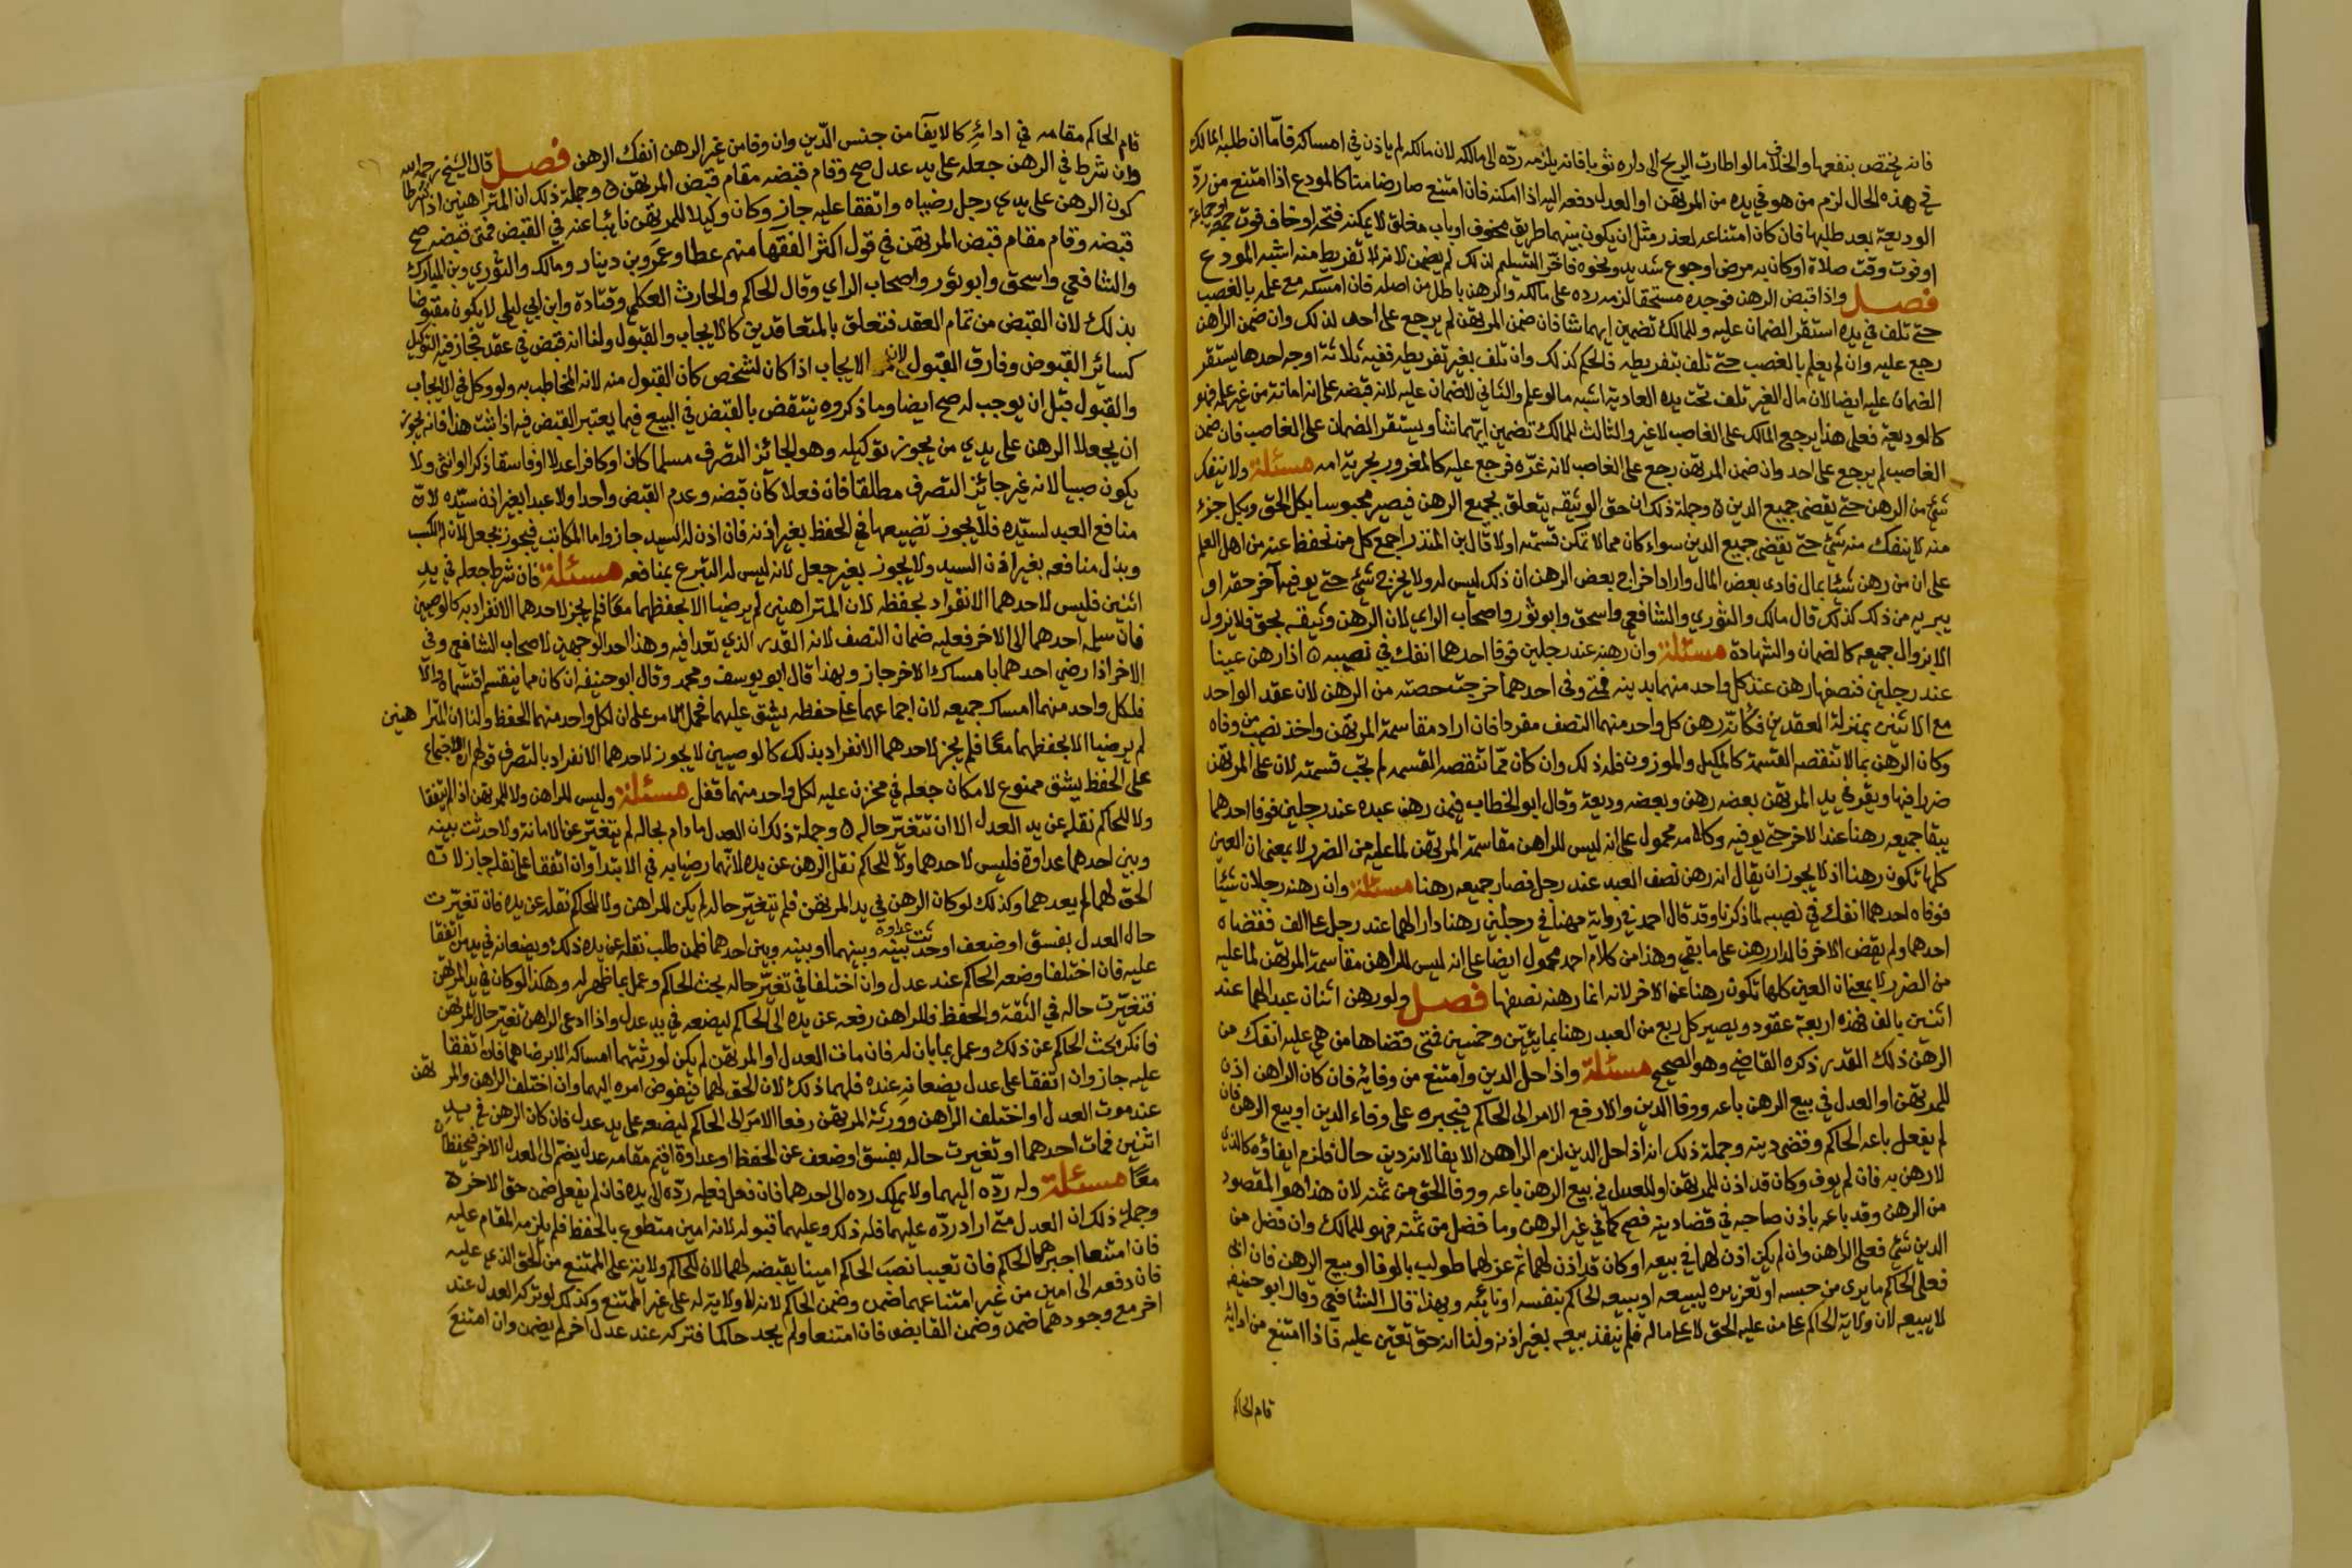 فانه يختص بنفعها والخلاف مالو اطارت الريح الى داره ثوبا فانه يلزمه ردّه الى مالكه لان مالكه لم ياذن في امساكه فامّا ان طلبه المالك
في هذه الحال لزم من هو في يده من المرتهن او العدل دفعه اليه اذا امكنه فان امتنع صار ضامنا كالمودع اذا امتنع من ردّ
الوديعة بعد طلبها فان كان امتناعه لعذر مثل ان يكون بينهما طريق مخوف او باب مغلق لا يمكنه فتحه او خاف فوت جمعة او جماعة
او فوت وقت صلاة او كان به مرض او جوع شديد ونحوه فاخّر التسليم لذلك لم يضمن لانه لا تفريط منه اشبه المودع
فصل واذا قبض الرهن فوجده مستحقا لزمه رده على مالكه والرهن باطل من اصله فان امسكه مع علمه بالغصب
حتى تلف في يده استقر الضمان عليه وللمالك تضمين ايهما شا فان ضمن المرتهن لم يرجع على احد لذلك وان ضمن الراهن
رجع عليه وان لم يعلم بالغصب حتى تلف بتفريطه فالحكم كذلك وان تلف بغير تفريطه ففيه ثلاثة اوجه احدها يستقر
الضمان عليه ايضا لان مال الغير تلف تحت يده العادية اشبه مالو علم والثاني لا ضمان عليه لانه قبضه على انه امانة من غير علمه فهو
كالوديعة فعلى هذا يرجع المالك على الغاصب لا غير والثالث للمالك تضمين ايّهما شا ويستقر الضمان على الغاصب فان ضمن
الغاصب لم يرجع على احد وان ضمن المرتهن رجع على الغاصب لانه غرّه فرجع عليه كالمغرور بحرية امه مسئلة ولا ينفك
شئ من الرهن حتى يقضى جميع الدين وجملة ذلك ان حق الوثيقه يتعلق بجميع الرهن فيصير محبوسا بكل الحق وبكل جزء
منه لا ينفك منه شئ حتى يقضى جميع الدين سواء كان مما لا تمكن قسمته اولا قال بن المنذر اجمع كل من نحفظ عنه من اهل العلم
على ان من رهن شئيا بمال فادى بعض المال واراد اخراج بعض الرهن ان ذلك ليس له ولا يخرج شئ حتى يوفيه آخر حقه او
يبريه من ذلك كذلك قال مالك والثوري والشافعي واسحق وابو ثور واصحاب الراي لان الرهن وثيقه بحق فلا يزول
الا بزوال جميعه كالضمان والشهادة مسئلة وان رهنه عند رجلين فوفا احدهما انفك في نصيبه اذا رهن عينا
عند رجلين فنصفها رهن عند كل واحد منهما بدينه فمتى وفى احدهما خرجت حصته من الرهن لان عقد الواحد
مع الاثنين بمنزلة العقدين فكانّه رهن كل واحد منهما النصف مفردا فان اراد مقاسمة المرتهن واخذ نصيب من وفاه
وكان الرهن بما لا تنقصه القسمة كالمكيل والموزون فله ذلك وان كان ممّا تنقصه القسمه لم تجب قسمته لان على المرتهن
ضررا فيها ويقر في يد المرتهن بعضه رهن وبعضه وديعة وقال ابو الخطاب فيمن رهن عبده عند رجلين فوفا احدهما
يبقا جميعه رهنا عند الاخر حتى يوفيه وكلامه محمول على انه ليس للراهن مقاسمة المرتهن لما عليه من الضرر لا بمعنى ان العين
كلها تكون رهنا اذ لا يجوز ان يقال انه رهن نصف العبد عند رجل فصار جميعه رهنا مسئلة وان رهنه رجلان شئيا
فوفاه احدهما انفك في نصيبه لما ذكرنا وقد قال احمد في رواية مهنا في رجلين رهنا دارا لهما عند رجل على الف فقضاه
احدهما ولم يقض الاخر فالدار رهن على ما بقي وهذا من كلام احمد محمول ايضا على انه ليس للراهن مقاسمة المرتهن لما عليه
من الضرر لا بمعنى ان العين كلها تكون رهنا عند الاخر لانه انما رهنه نصفها فصل ولو رهن اثنان عبدا لهما عند
اثنين بالف فهذه اربعة عقود ويصير كل ربع من العبد رهنا بمايتين وخمسين فمتى قضاها من هي عليه انفك من
الرهن ذلك القدر ذكره القاضي وهو الصحيح مسئلة واذا حل الدين وامتنع من وفائه فان كان الراهن اذن
للمرتهن او العدل في بيع الرهن باعه ووفا الدين والا رفع الامر الى الحاكم فيجبره على وفاء الدين او بيع الرهن فان
لم يفعل باعه الحاكم وقضى دينه وجملة ذلك انه اذا حل الدين لزم الراهن الايفا لانه دين حال فلزم ايفاؤه كالذي
لا رهن به فان لم يوف وكان قد اذن للمرتهن او للعدل في بيع الرهن باعه ووفا الحق من ثمنه لان هذا هو المقصود
من الرهن وقد باعه باذن صاحبه في قضا دينه فصح كما في غير الرهن وما فضل من ثمنه فهو للمالك وان فضل من
الدين شئ فعلى الراهن وان لم يكن اذن لهما في بيعه او كان قد اذن لهما ثم عزلهما طولب بالوفا او بيع الرهن فان ابى
فعلى الحاكم ما يرى من حبسه او تعزيره ليبيعه او يبيعه الحاكم بنفسه او نائبه وبهذا قال الشافعي وقال ابو حنيفه
لا يبيعه لان ولاية الحاكم على من عليه الحق لا على ماله فلم ينفذ بيعه بغير اذنه ولنا انه حق تعيّن عليه فاذا امتنع من ادائه
قام الحاكم
قام الحاكم مقامه في ادائه كالايفآ من جنس الدّين وان وفا من غير الرهن انفك الرهن فصل قال الشيخ رحمه الله
وان شرط في الرهن جعله على يد عدل صح وقام قبضه مقام قبض المرتهن وجملة ذلك ان المتراهنين اذا شرطا
كون الرهن على يدي رجل رضياه واتفقا عليه جاز وكان وكيلا للمرتهن نائبا عنه في القبض فمتى قبضه صح
قبضه وقام مقام قبض المرتهن في قول اكثر الفقها منهم عطا وعمرو بن دينار ومالك والثوري وبن المبارك
والشافعي واسحق وابو ثور واصحاب الراي وقال الحاكم والحارث العكلي وقتادة وابن ابي ليلى لا يكون مقبوضا
بذلك لان القبض من تمام العقد فتعلق بالمتعاقدين كالايجاب والقبول ولنا انه قبض في عقد فجاز فيه التوكيل
كسائر القبوض وفارق القبول لان الايجاب اذا كان لشخص كان القبول منه لانه المخاطب به ولو وكل في الايجاب
والقبول قبل ان يوجب له صح ايضا وما ذكروه ينتقض بالقبض في البيع فيما يعتبر القبض فيه اذا ثبت هذا فانه يجوز
ان يجعلا الرهن على يدي من يجوز توكيله وهو الجائز التصرف مسلما كان او كافرا عدلا او فاسقا ذكرا او انثى ولا
يكون صبيا لانه غير جائز التصرف مطلقا فان فعلا كان قبضه وعدم القبض واحدا ولا عبدا بغير اذن سيّده لانّ
منافع العبد لسيّده فلا يجوز تضييعها في الحفظ بغير اذنه فان اذن له السيد جاز واما المكاتب فيجوز بجعل لان له الكسب
وبذل منافعه بغير اذن السيد ولا يجوز بغير جعل لانه ليس له التبرع بمنافعه مسئلة فان شرط جعله في يد
اثنين فليس لاحدهما الانفراد بحفظه لان المتراهنين لم يرضيا الا بحفظهما معًا فلم يجز لاحدهما الانفراد به كالوصيين
فان سلمه احدهما الى الاخر فعليه ضمان النصف لانه القدر الذي تعدا فيه وهذا احد الوجهين لاصحاب الشافعي وفي
الاخر اذا رضي احدهما بامساك الاخر جاز وبهذا قال ابو يوسف ومحمد وقال ابو حنيفه ان كان مما ينقسم اقتسماه والّا
فلكل واحد منهما امساك جميعه لان اجتماعهما على حفظه يشق عليهما فحمل الامر على ان لكل واحد منهما الحفظ ولنا ان المتراهنين
لم يرضيا الا بحفظهما معًا فلم يجز لاحدهما الانفراد بذلك كالوصيين لا يجوز لاحدهما الانفراد بالتصرف قولهم ان الاجتماع
على الحفظ يشق ممنوع لامكان جعله في مخزن عليه لكل واحد منهما قفل مسئلة وليس للراهن ولا للمرتهن اذا لم يتفقا
ولا للحاكم نقله عن يد العدل الا ان تتغيّر حاله وجملة ذلك ان العدل ما دام بحاله لم يتغيّر عن الامانة ولا حدثت بينه
وبين احدهما عداوة فليس لاحدهما ولا للحاكم نقل الرهن عن يده لانّهما رضيا به في الابتدا وان اتفقا على نقله جاز لان
الحق لهما لم يعدهما وكذلك لو كان الرهن في يد المرتهن فلم تتغيّر حاله لم يكن للراهن ولا للحاكم نقله عن يده فان تغيّرت
حال العدل بفسق او ضعف او حدثت عداوة بينه وبينهما او بينه وبين احدهما فلمن طلب نقله عن يده ذلك ويضعانه في يد من اتفقا
عليه فان اختلفا وضعه الحاكم عند عدل وان اختلفا في تغيّر حاله بحث الحاكم وعمل بما ظهر له وهكذا لو كان في يد المرتهن
فتغيّرت حاله في الثقة والحفظ فللراهن رفعه عن يده الى الحاكم ليضعه في يد عدل واذا ادعى الراهن تغيّر حال المرتهن
فانكر بحث الحاكم عن ذلك وعمل بما بان له فان مات العدل او المرتهن لم يكن لورثتهما امساكه الا برضاهما فان اتفقا
عليه جاز وان اتفقا على عدل يضعانه عنده فلهما ذلك لان الحق لهما فيفوض امره اليهما وان اختلف الراهن والمرتهن
عند موت العدل او اختلف الراهن وورثة المرتهن رفعا الامر الى الحاكم ليضعه على يد عدل فان كان الرهن في يد
اثنين فمات احدهما او تغيرت حاله بفسق او ضعف عن الحفظ او عداوة اقيم مقامه عدل يضم الى العدل الاخر فيحفظان
معًا مسئلة وله ردّه اليهما ولا يملك رده الى احدهما فان فعل فعليه ردّه الى يده فان لم يفعل ضمن حق الاخر
وجملة ذلك ان العدل متى اراد ردّه عليهما فله ذلك وعليهما قبوله لانه امين متطوع بالحفظ فلم يلزمه المقام عليه
فان امتنعا اجبرهما الحاكم فان تغيبا نصب الحاكم امينا يقبضه لهما لان للحاكم ولاية على الممتنع من الحق الذي عليه
فان دفعه الى امين من غير امتناعهما ضمن وضمن الحاكم لانه لا ولاية له على غير الممتنع وكذلك لو تركه العدل عند
اخر مع وجودهما ضمن وضمن القابض فان امتنعا ولم يجد حاكما فتركه عند عدل اخر لم يضمن وان امتنع